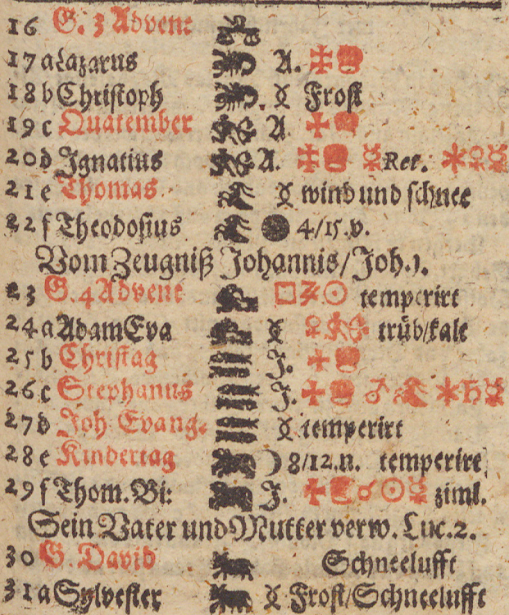 16 G. 3 Advent
17 a Lazarus A.
18 b Christoph Frost
19 c Quatember A
20 d Ignatius A. ☿ Ret. ✶ ♀ ☿
21 e Thomas wind und schnee
22 f Theodosius ● 4/15.v.
Vom Zeugniß Johannis/Joh.1.
23 G. 4 Advent □ ♃ ☉ temperirt
24 a Adam Eva trüb/kalt
25 b Christag J.
26 c Stephanus J.
27 d Joh Evang- temperirt
28 e Kindertag ☽ 8/12.n. temperirt
29 f Thom. Bi: J. ♂ ☉ ☿ ziml.
Sein Vater und Mutter verw. Luc.2.
30 G. David Schneelufft
31 a Sylvester Frost/Schneelufft